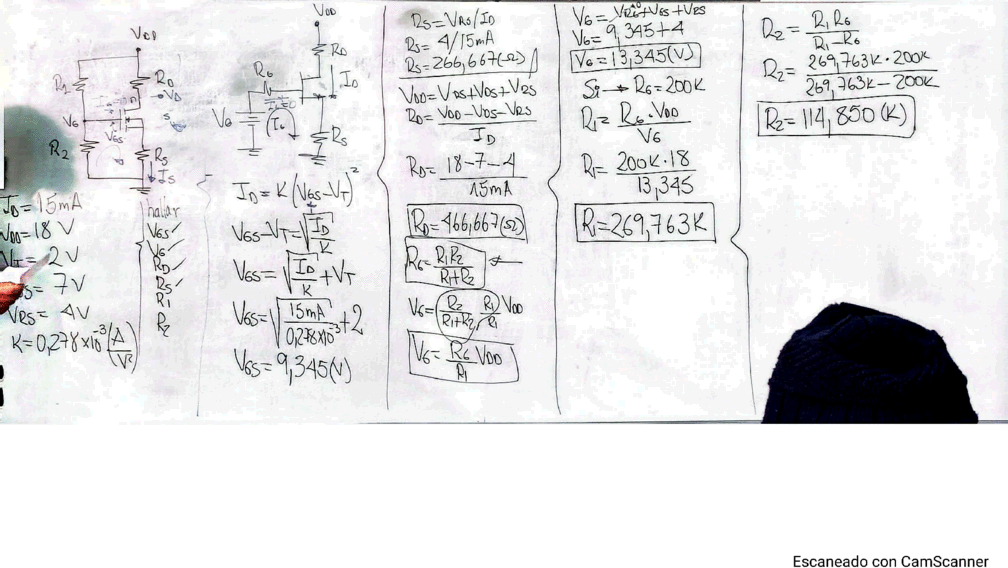 VDD
R1
RD
VD
VG
VGS
R2
RS
IS
ID = 15mA
VDD = 18 V
VT = 2V
= 7V
VRS = 4V
K = 0,278 x 10^-3 (A/V²)
hallar
VGS ✓
VG ✓
RD ✓
RS ✓
R1
R2
VDD
RD
RG
ID
IG=0
VG
IG
RS
ID = K (VGS - VT)²
VGS - VT = √(ID/K)
VGS = √(ID/K) + VT
VGS = √(15mA/0,278x10^-3) + 2
VGS = 9,345 (V)
RS = VRS/ID
RS = 4/15mA
RS = 266,667 (Ω)
VDD = VRS + VDS + VRS
RD = VDD - VDS - VRS / ID
RD = 18 - 7 - 4 / 15mA
RD = 466,667 (Ω)
RG = R1 R2 / R1 + R2 ←
VG = (R2 / R1 + R2 · R1 / R1) VDD
VG = RG / R1 VDD
VG = VRG + VGS + VRS
VG = 9,345 + 4
VG = 13,345 (V)
Si → RG = 200K
R1 = RG · VDD / VG
R1 = 200K · 18 / 13,345
R1 = 269,763K
R2 = R1 RG / R1 - RG
R2 = 269,763K · 200K / 269,763K - 200K
R2 = 114,850 (K)
Escaneado con CamScanner